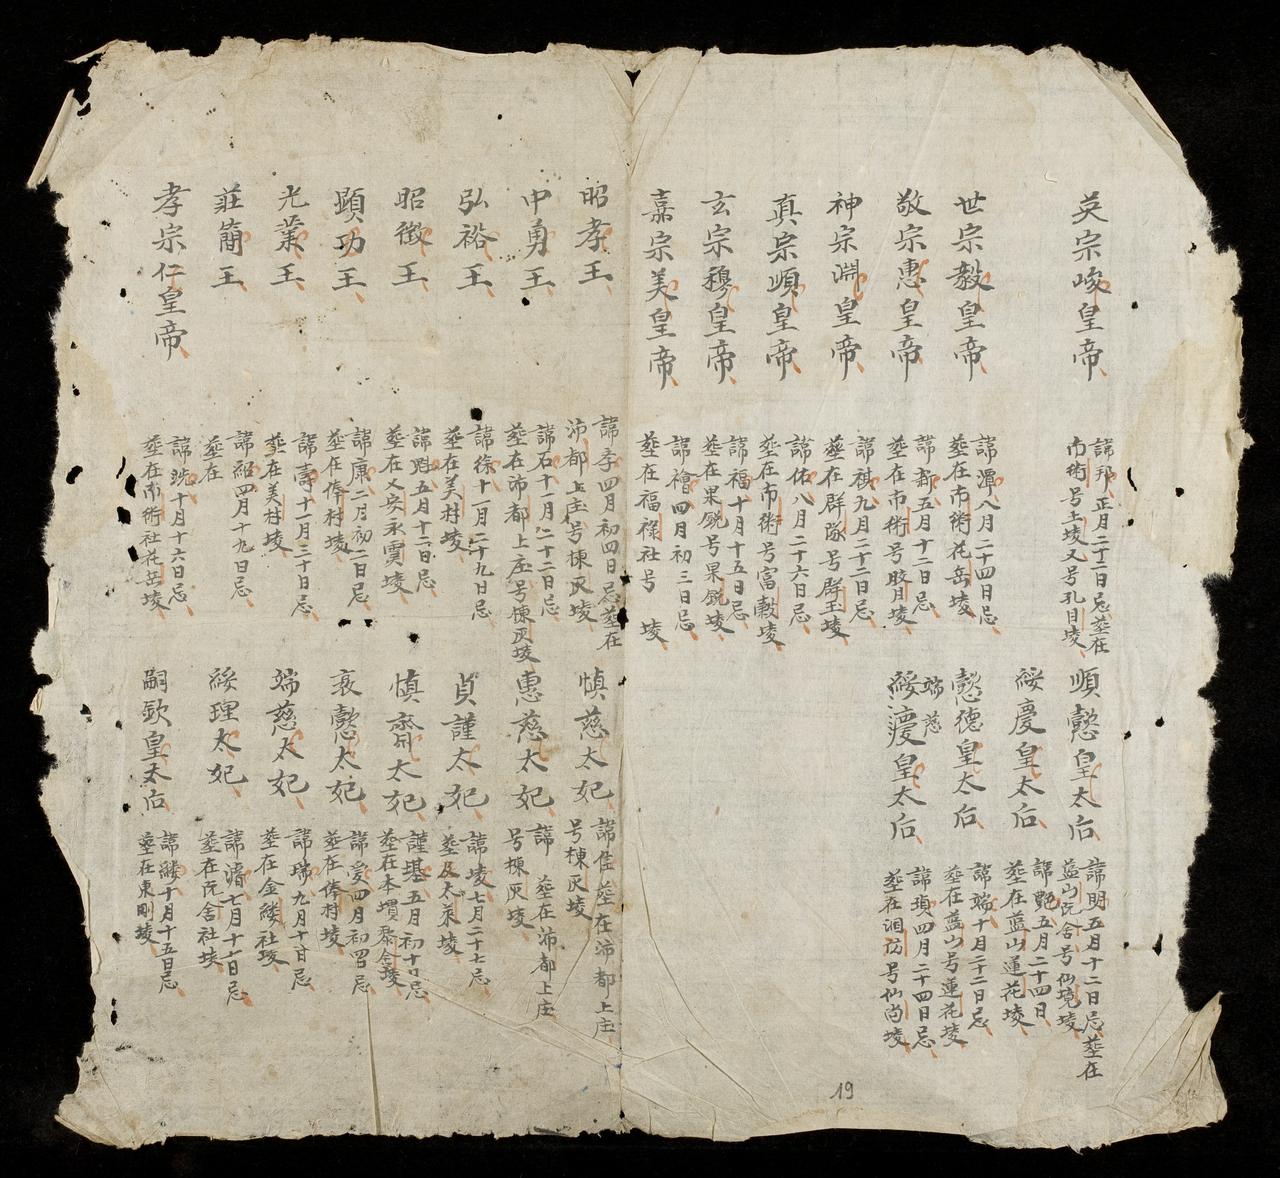 英宗峻皇帝
諱邦正月二十二日忌葬在
布衛号土堎又号孔目堎
順懿皇太后
諱明五月十二日忌葬在
藍山阮舍号仙境堎
綏慶皇太后
諱艷五月二十四日
葬在藍山蓮花堎
世宗毅皇帝
諱潭八月二十四日忌
葬在布衛花岳堎
懿德皇太后
諱端十月二十二日忌
葬在藍山号蓮花堎
敬宗惠皇帝
諱寧五月十二日忌
葬在布衛号胶月堎
端慈
綏慶皇太后
諱瑣四月二十四日忌
葬在汨汸号仙尚堎
神宗淵皇帝
諱祺九月二十二日忌
葬在群隊号群玉堎
真宗順皇帝
諱佑八月二十六日忌
葬在布衛号富穀堎
玄宗穆皇帝
諱福十月十五日忌
葬在果銳号果銳堎
嘉宗美皇帝
諱襘四月初三日忌
葬在福祿社号 堎
昭孝王
諱李四月初四日忌葬在
沛都上庄号棟灰堎
慎慈太妃
諱 葬在沛都上庄
号棟灰堎
中勇王
諱石十一月二十二日忌
葬在沛都上庄号棟灰堎
惠慈太妃
諱 葬在沛都上庄
号棟灰堎
弘裕王
諱徐十一月二十九日忌
葬在美村堎
貞謹太妃
諱堎七月二十七忌
葬及太來堎
昭徵王
諱 五月十二日忌
葬在乂安永賣堎
慎齋太妃
謹堪五月初十日忌
葬在本墰黎舍堎
顕功王
諱康二月初二日忌
葬在俸村堎
哀懿太妃
諱愛四月初四忌
葬在俸村堎
光業王
諱壽十一月三十日忌
葬在美村堎
端慈太妃
諱瑞九月十 日忌
葬在金縷社堎
莊簡王
諱紹四月十九日忌
葬在
綏理太妃
諱 七月十七日忌
葬在阮舍社埃
孝宗仁皇帝
諱洸十月十六日忌
葬在布衛社花岳堎
嗣歆皇太后
諱縷十月十五日忌
葬在東剛堎
19